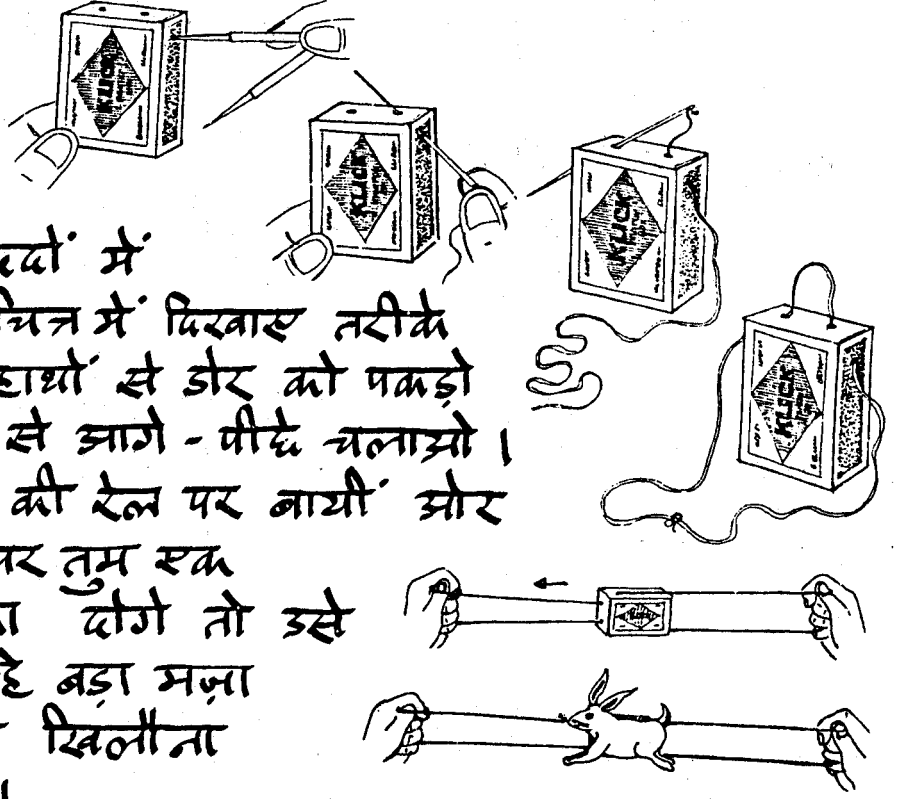 KLICK
KLICK
KLICK
KLICK
में
चित्र में दिखाए तरीके
हाथों से डोर को पकड़ो
से आगे - पीछे चलाओ ।
की रेल पर बायीं ओर
पर तुम एक
दोगे तो उसे
है बड़ा मज़ा
खिलौना